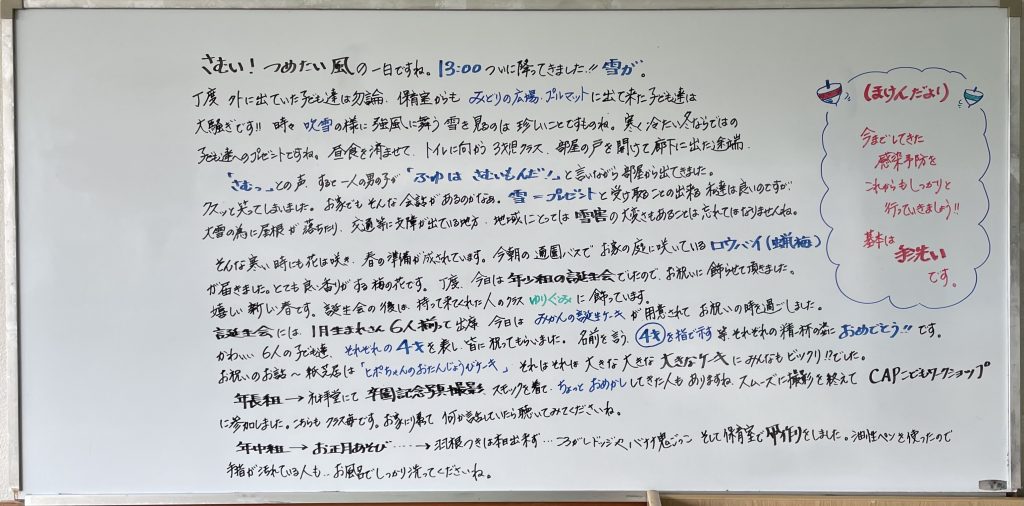 さむい！ つめたい 風の 一日ですね。 13:00 ついに降ってきました!! 雪が。
丁度 外に出ていた子ども達は勿論、保育室からも みどりの広場・プルマットに出て来た子ども達は
大騒ぎです!! 時々 吹雪の様に 強風に舞う 雪を見るのは 珍しいことですものね。 寒く冷たい冬ならではの
子ども達へのプレゼントですね。 昼食を済ませて、トイレに向かう 3才児クラス、部屋の戸を開けて 廊下に出た途端、
「さむっ」との声、すると 一人の男の子が「ふゆは さむいもんだ!」と言いながら 部屋から出てきました。
クスッと笑ってしまいました。 お家でも そんな会話があるのかなあ。 雪=プレゼント と受け取ることの出来る 私達は良いのですが
大雪の為に屋根が 落ちたり、交通等に支障が出ている地方、地域にとっては 雪害の大変さもあることは 忘れてはなりませんね。
そんな寒い時にも 花は咲き、春の準備が成されています。 今朝の 通園バスで お家の庭に咲いている ロウバイ(蝋梅)
が届きました。とても 良い香りがする 梅の花です。 丁度、今日は 年少組の誕生会でしたので、お祝いに 飾らせて頂きました。
嬉しい 新しい春です。 誕生会の後は、持って来てくれた人のクラス ゆりぐみに 飾っています。
誕生会には、1月生まれさん 6人揃って出席 今日は みかんの誕生ケーキが 用意されて お祝いの時を過ごしました。
かわいい 6人の子ども達、それぞれの 4才を表し、皆に祝ってもらいました。 名前を言う、4才を指で示す 等、それぞれの 姿に おめでとう!! です。
お祝いのお話〜 紙芝居は「とポちゃんのおたんじょうびケーキ」 それはそれは 大きな 大きな 大きなケーキ に みんなも ビックリ!! でした。
年長組 → 礼拝堂にて 卒園記念写真撮影 スモックを着て、ちょっと おめかし してきた人も ありますね。スムーズに撮影を終えて CAPこどもワークショップ
に参加しました。こちらも クラス毎です。 お家に帰って 何か話していたら 聴いてみてくださいね。
年中組 → お正月あそび ‥‥→ 羽根つきは 本日出来ず… ころがしドッジや、バナナ鬼ごっこ そして 保育室で 作りをしました。 油性ペンを使ったので
手指が汚れている人も‥ お風呂でしっかり洗ってくださいね。
(ほけんだより)
今までしてきた
感染予防を
これからもしっかりと
行っていきましょう!!
基本は
手洗い
です。